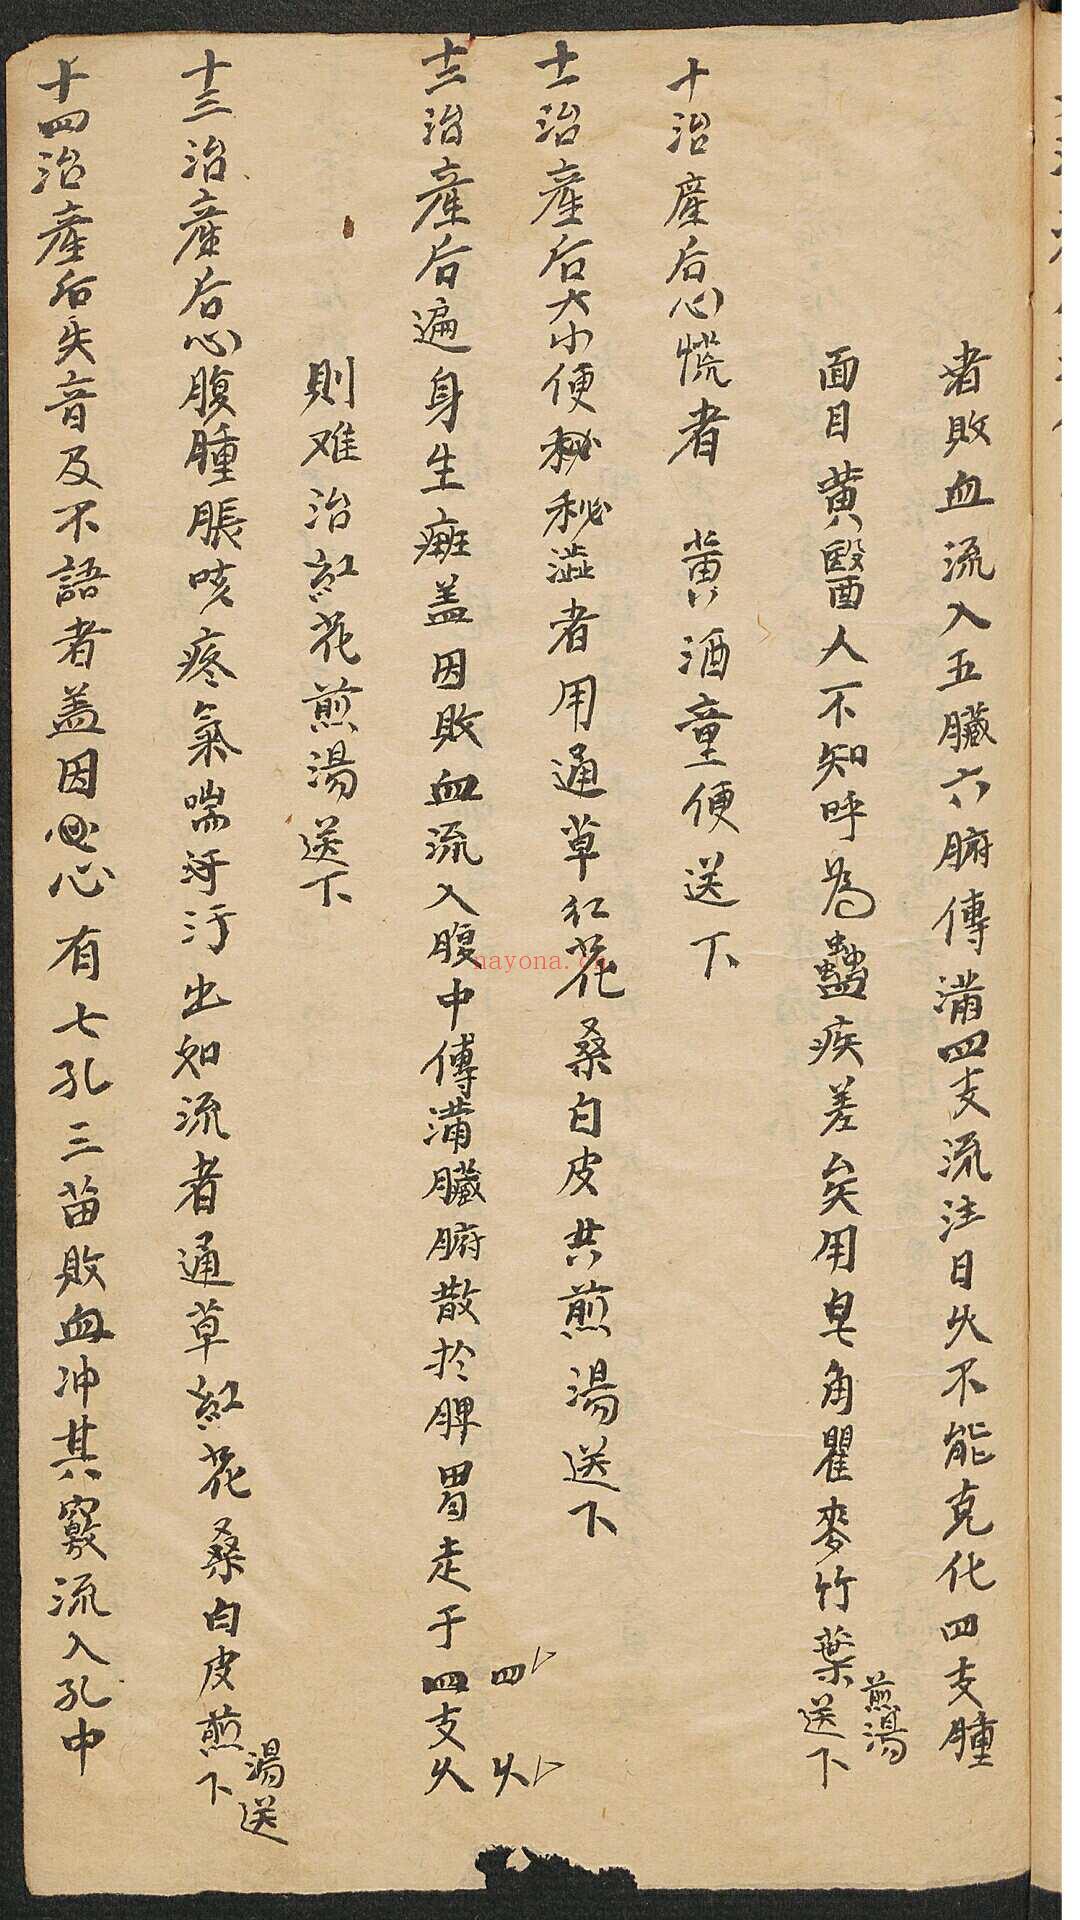 者敗血流入五臟六腑傳滿四支流注日久不能克化四支腫
面目黄醫人不知呼為蠱疾差矣用皂角瞿麥竹葉煎湯送下
十治產后心慌者 黄酒童便送下
十一治產后大小便秘秘澁者用通草红花桑白皮共煎湯送下
十二治產后遍身生癍盖因敗血流入腹中傳滿臟腑散扵脾胃走于四支久
四 久
則难治紅花煎湯送下
十三治產后心腹腫脹咳疼氣喘汙汙出如流者通草紅花桑白皮煎湯送下
十四治產后失音及不語者盖因心心有七孔三苗敗血冲其竅流入孔中
nayona.cn